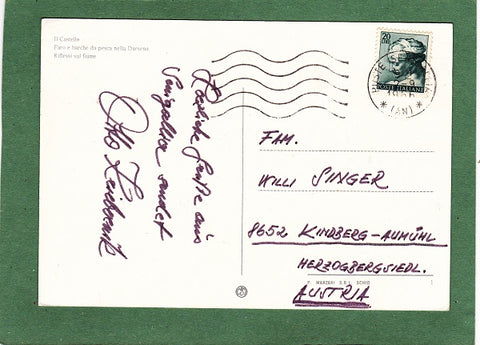 Il Castello
Faro e barche da pesca nella Darsena
Riflessi sul fiume
Herzliche Grüße aus
Senigallia sendet
Otto
POSTE ITALIANE
(AN)
FAM.
WILLI SINGER
8652 KINDBERG-AUMÜHL
HERZOGBERGSIEDL.
AUSTRIA